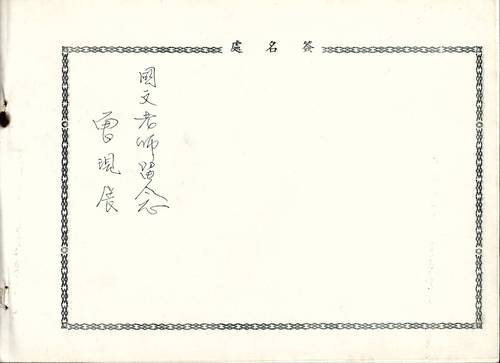 簽名處
國文老師留念
曾現辰